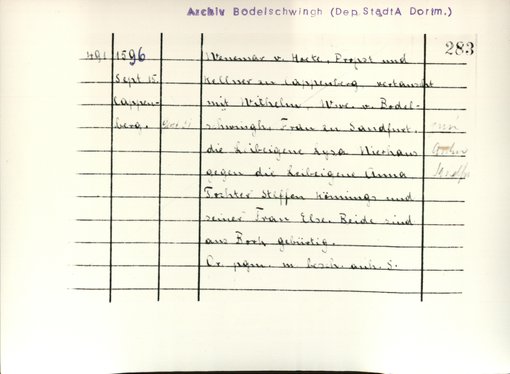 Archiv Bodelschwingh (Dep. StadtA Dortm.)
283
491 1596 Wenemar v. Hoete, Propst und
Sept. 15. Kellner zu Cappenberg, vertauscht
Cappen- mit Wilhelm, Wwe. v. Bodel-
berg. schwingh, Frau zu Sandfurt,
die Leibeigene Lysa Nierhaus
gegen die Leibeigene Anna
Tochter Steffen Könnings und
seiner Frau Else. Beide sind
aus Bork gebürtig.
Or. pgm. m. besch. anh. S.